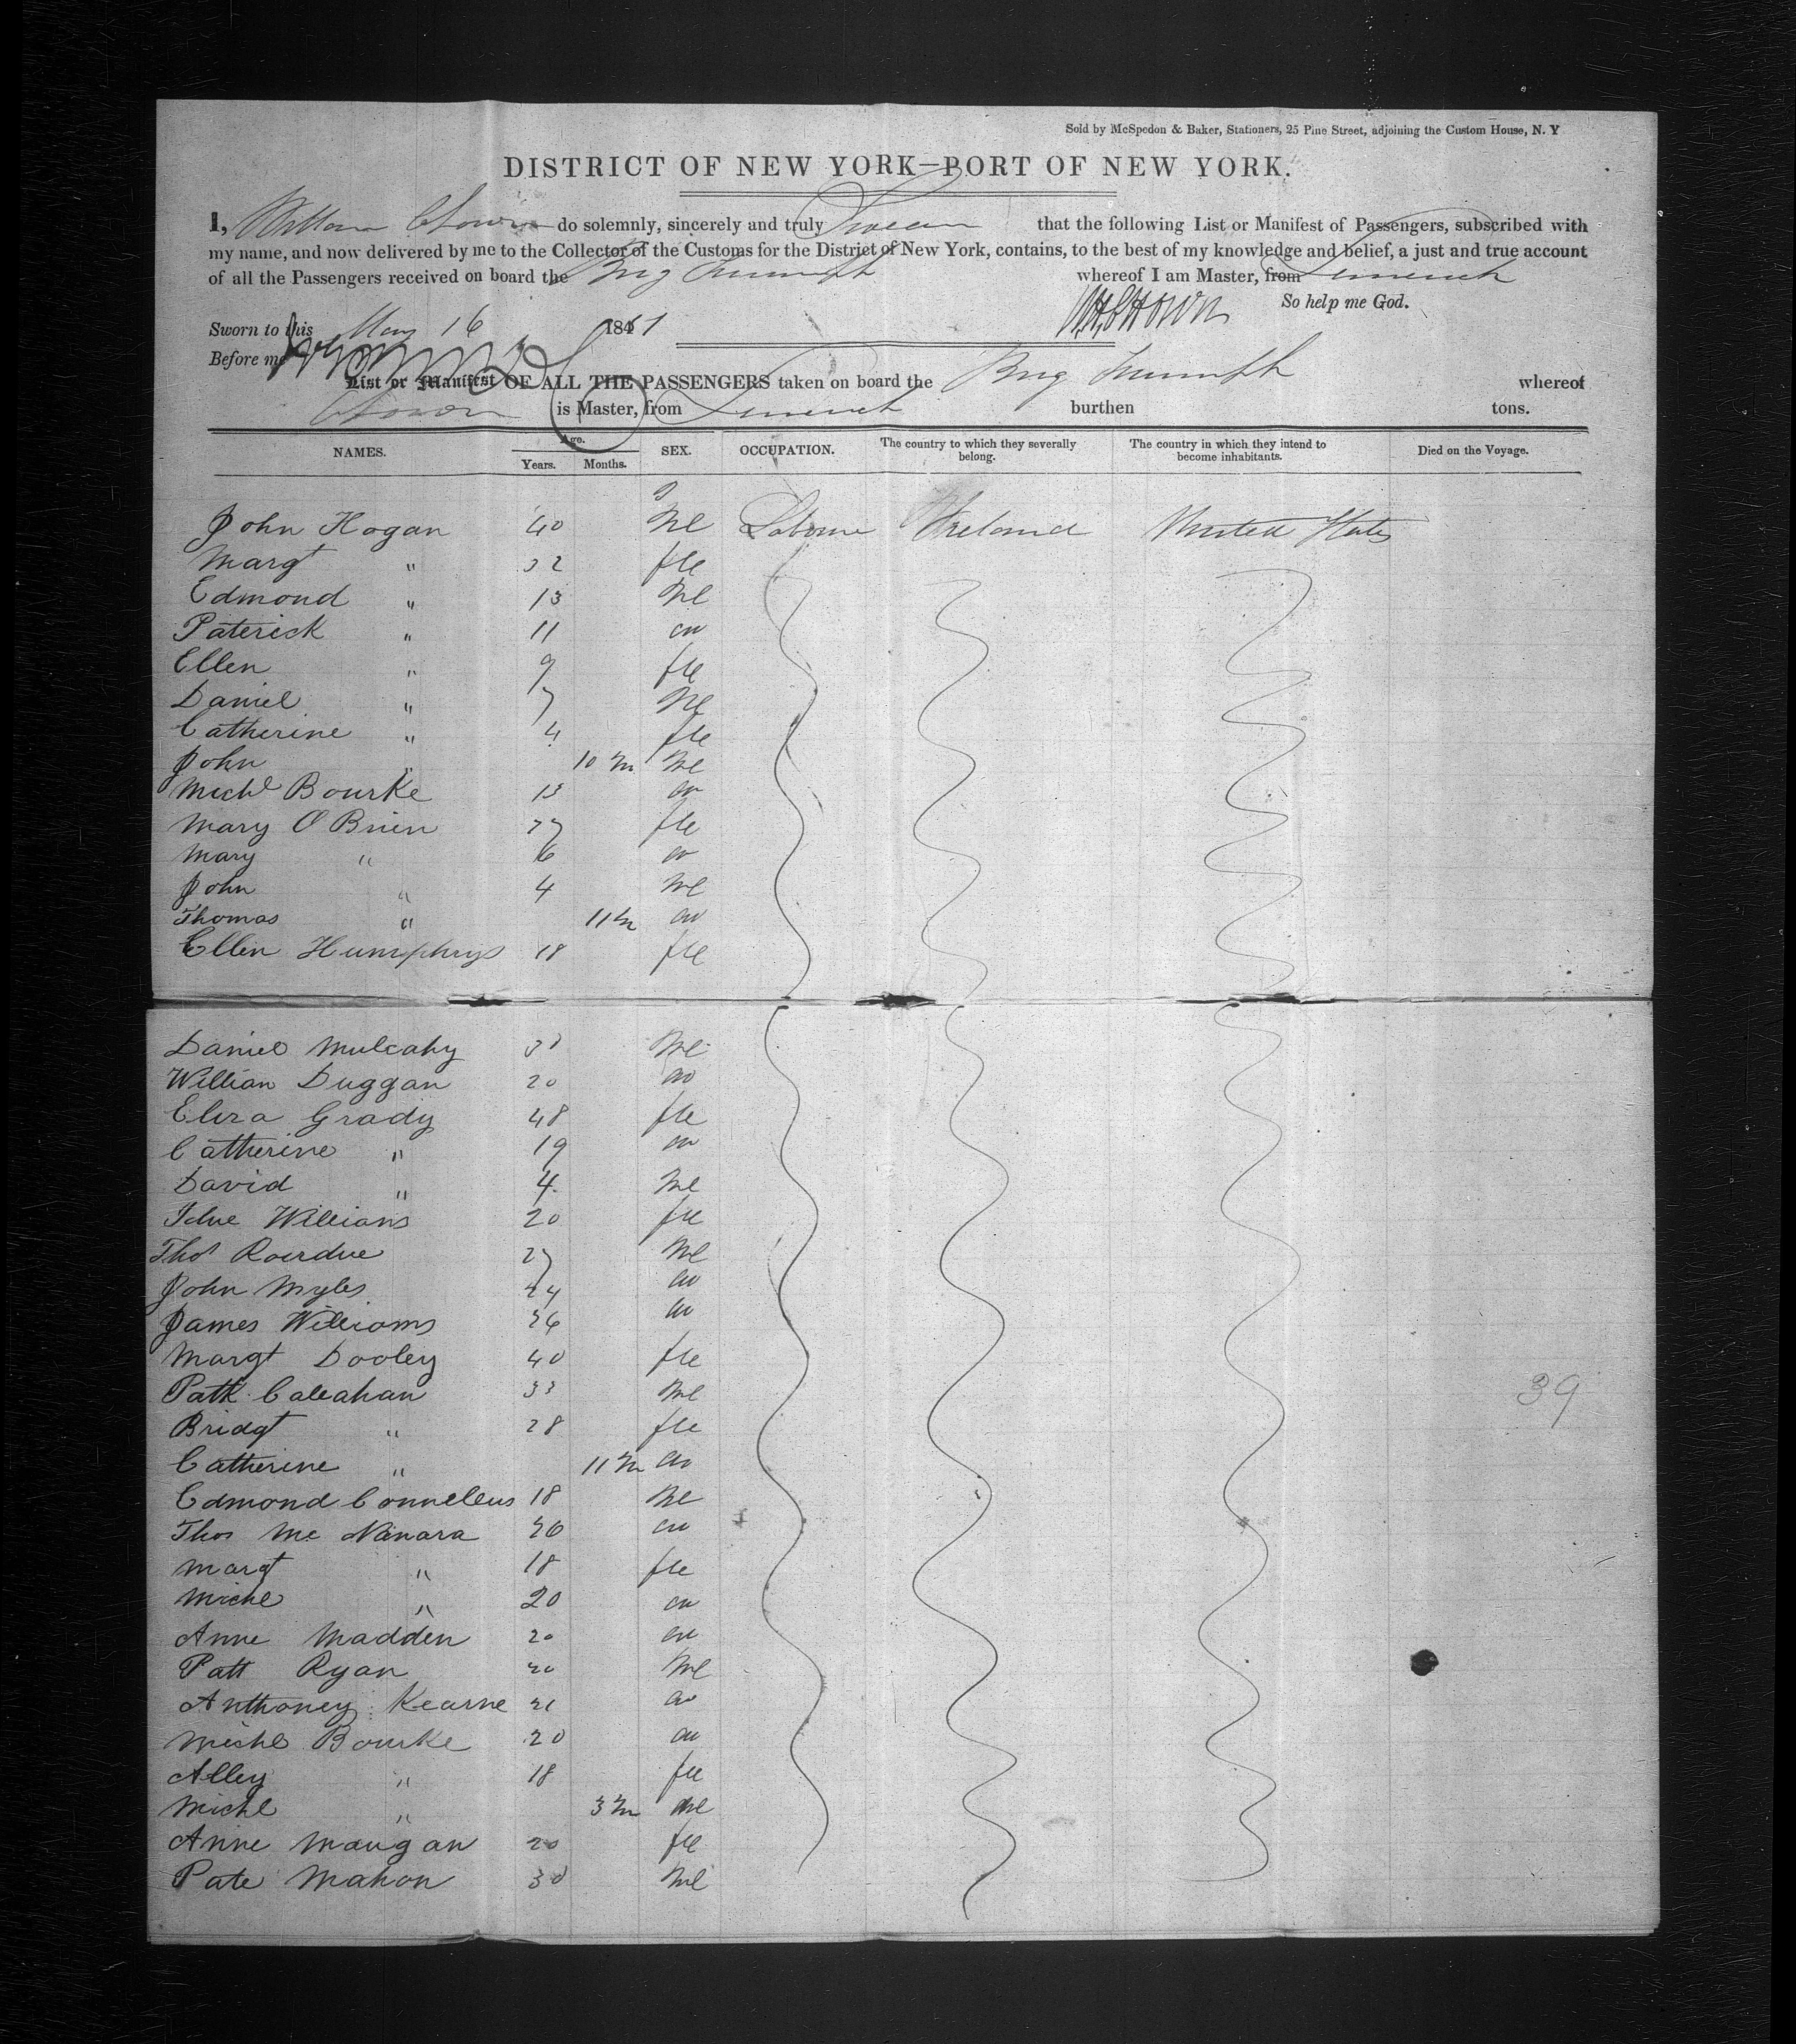 Sold by McSpedon & Baker, Stationers, 25 Pine Street, adjoining the Custom House, N. Y
DISTRICT OF NEW YORK—PORT OF NEW YORK.
I, do solemnly, sincerely and truly Swear that the following List or Manifest of Passengers, subscribed with
my name, and now delivered by me to the Collector of the Customs for the District of New York, contains, to the best of my knowledge and belief, a just and true account
of all the Passengers received on board the Brig Triumph whereof I am Master, from Limerick
So help me God.
Sworn to this May 16 1851
Before me
List or Manifest OF ALL THE PASSENGERS taken on board the Brig Triumph whereof
is Master, from Limerick burthen tons.
NAMES. Age. Years. Months. SEX. OCCUPATION. The country to which they severally belong. The country in which they intend to become inhabitants. Died on the Voyage.
John Hogan 40 Me Laborer Ireland United States
Margt " 32 fle
Edmond " 13 Me
Paterick " 11 do
Ellen " 9 fle
Daniel " 7 Me
Catherine " 4 fle
John " 10 m Me
Michl Bourke 13 do
Mary O Brien 27 fle
Mary " 6 do
John " 4 Me
Thomas " 11 m do
Ellen Humphrys 18 fle
Daniel Mulcahy Me
William Duggan 20 do
Eliza Grady 48 fle
Catherine " 19 do
David " 4 Me
Williams 20 fle
Thos 27 Me
John Myles 24 do
James Williams 26 do
Margt Dooley 40 fle
Patk Callahan 33 Me
39
Bridgt " 28 fle
Catherine " 11 m do
Edmond 18 Me
Thos Mc Namara 26 do
Margt " 18 fle
Michl " 20 do
Anne Madden 20 do
Patt Ryan 20 Me
Anthoney Kearne 21 do
Michl Bourke 20 do
Alley " 18 fle
Michl " 3 m Me
Anne Maugan 20 fle
Pate Mahon 30 Me